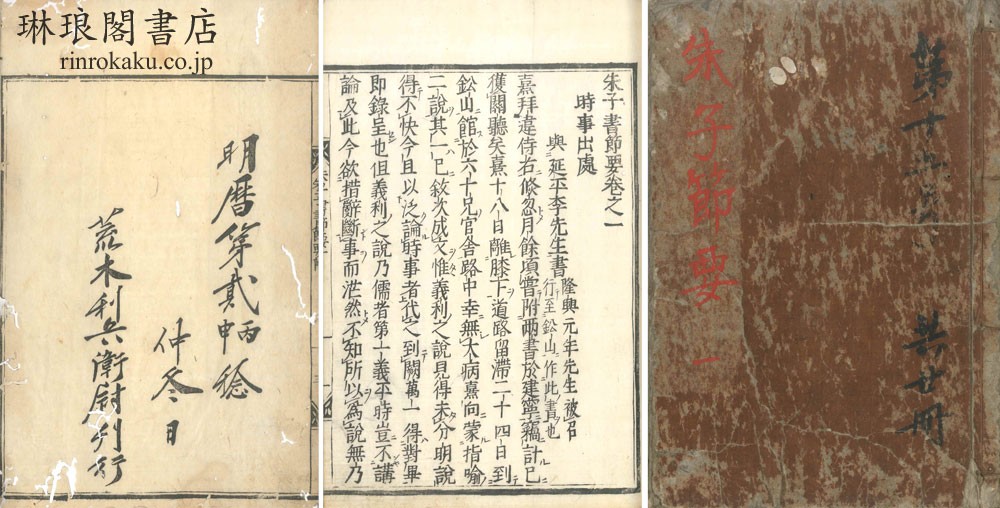 琳琅閣書店
rinrokaku.co.jp
明暦第貳丙申稔
仲冬日
荒木利兵衛尉刊行
朱子書節要卷之一
時事出處
與延平李先生書 隆興元年先生被召
行至鈆山作此書也
熹拜違侍右倐忽月餘頃嘗附两書於建寧竊計已
獲關聽矣熹十八日離膝下道路留滯二十四日到
鈆山館於六十兄官舍路中幸無大病熹向蒙指喻
二說其一已敘次成文惟義利之說見得未分明說
得不快今且以泛論時事者代之到闕萬一得對畢
即錄呈也但義利之說乃儒者第一義平時豈不講
論及此今欲措辭斷事而茫然不知所以為說無乃
朱子節要 一
共廿冊